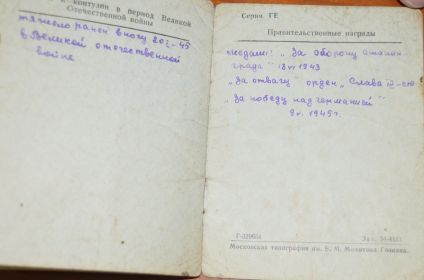 и контузии в период Великой
Отечественной войны
тяжело ранен в ногу 20 г-45
в Великой отечественной
войне
Серия ГЕ
Правительственные награды
медаль: „За оборону сталин-
града" 1943
„За отвагу" орден „Слава III-ст
„За победу над германией"
9 V. 1945 г.
Г-329654
Московская типография им. В. М. Молотова Гознака.